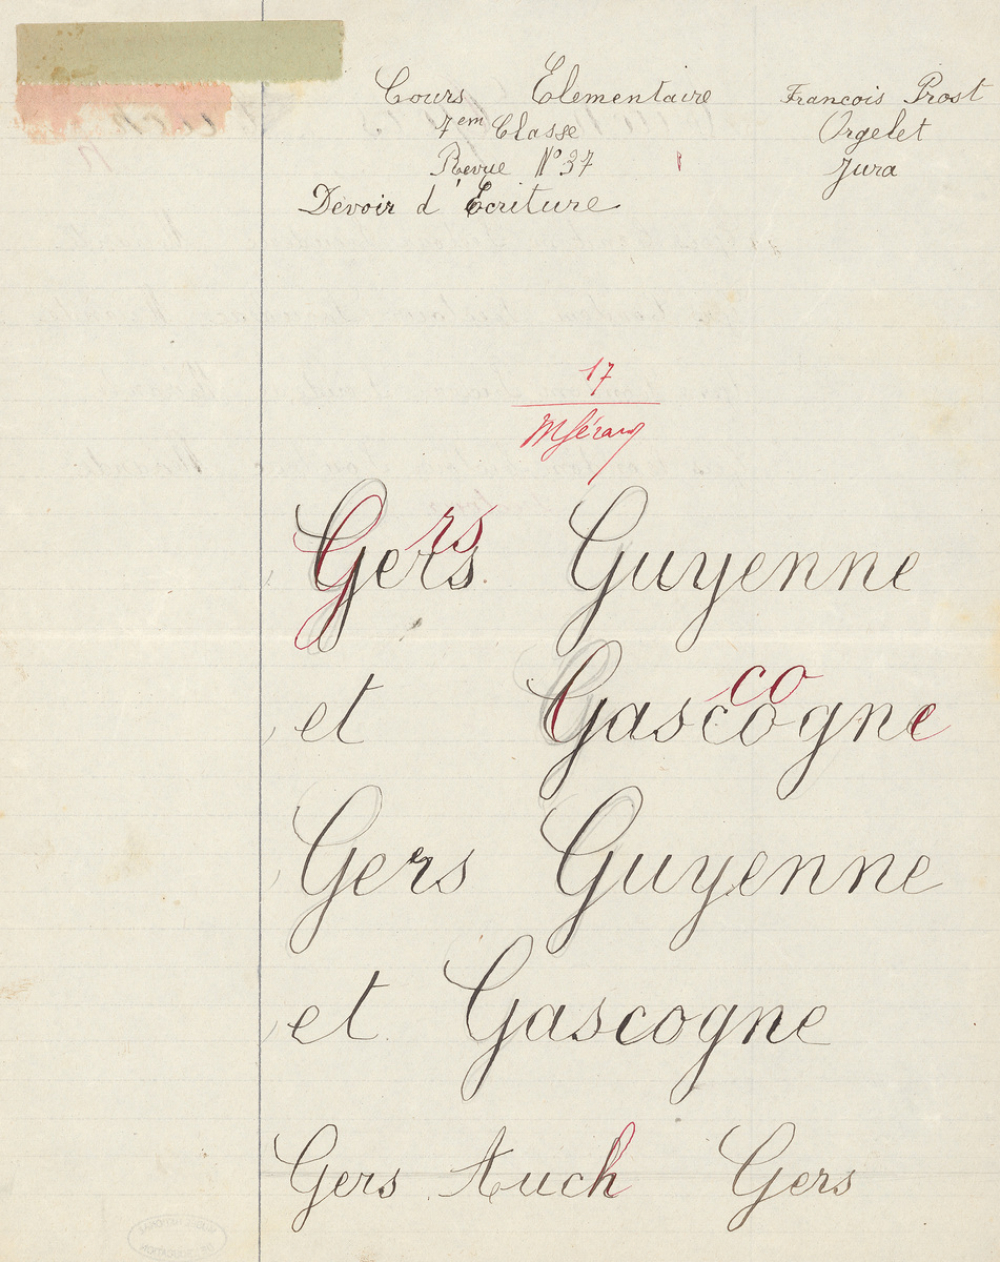 Cours Elementaire François Prost
7em Classe Orgelet
Revue N° 37 Jura
Devoir d'Ecriture
17
rs
Gers Guyenne
co
et Gascogne
Gers Guyenne
et Gascogne
Gers Auch Gers